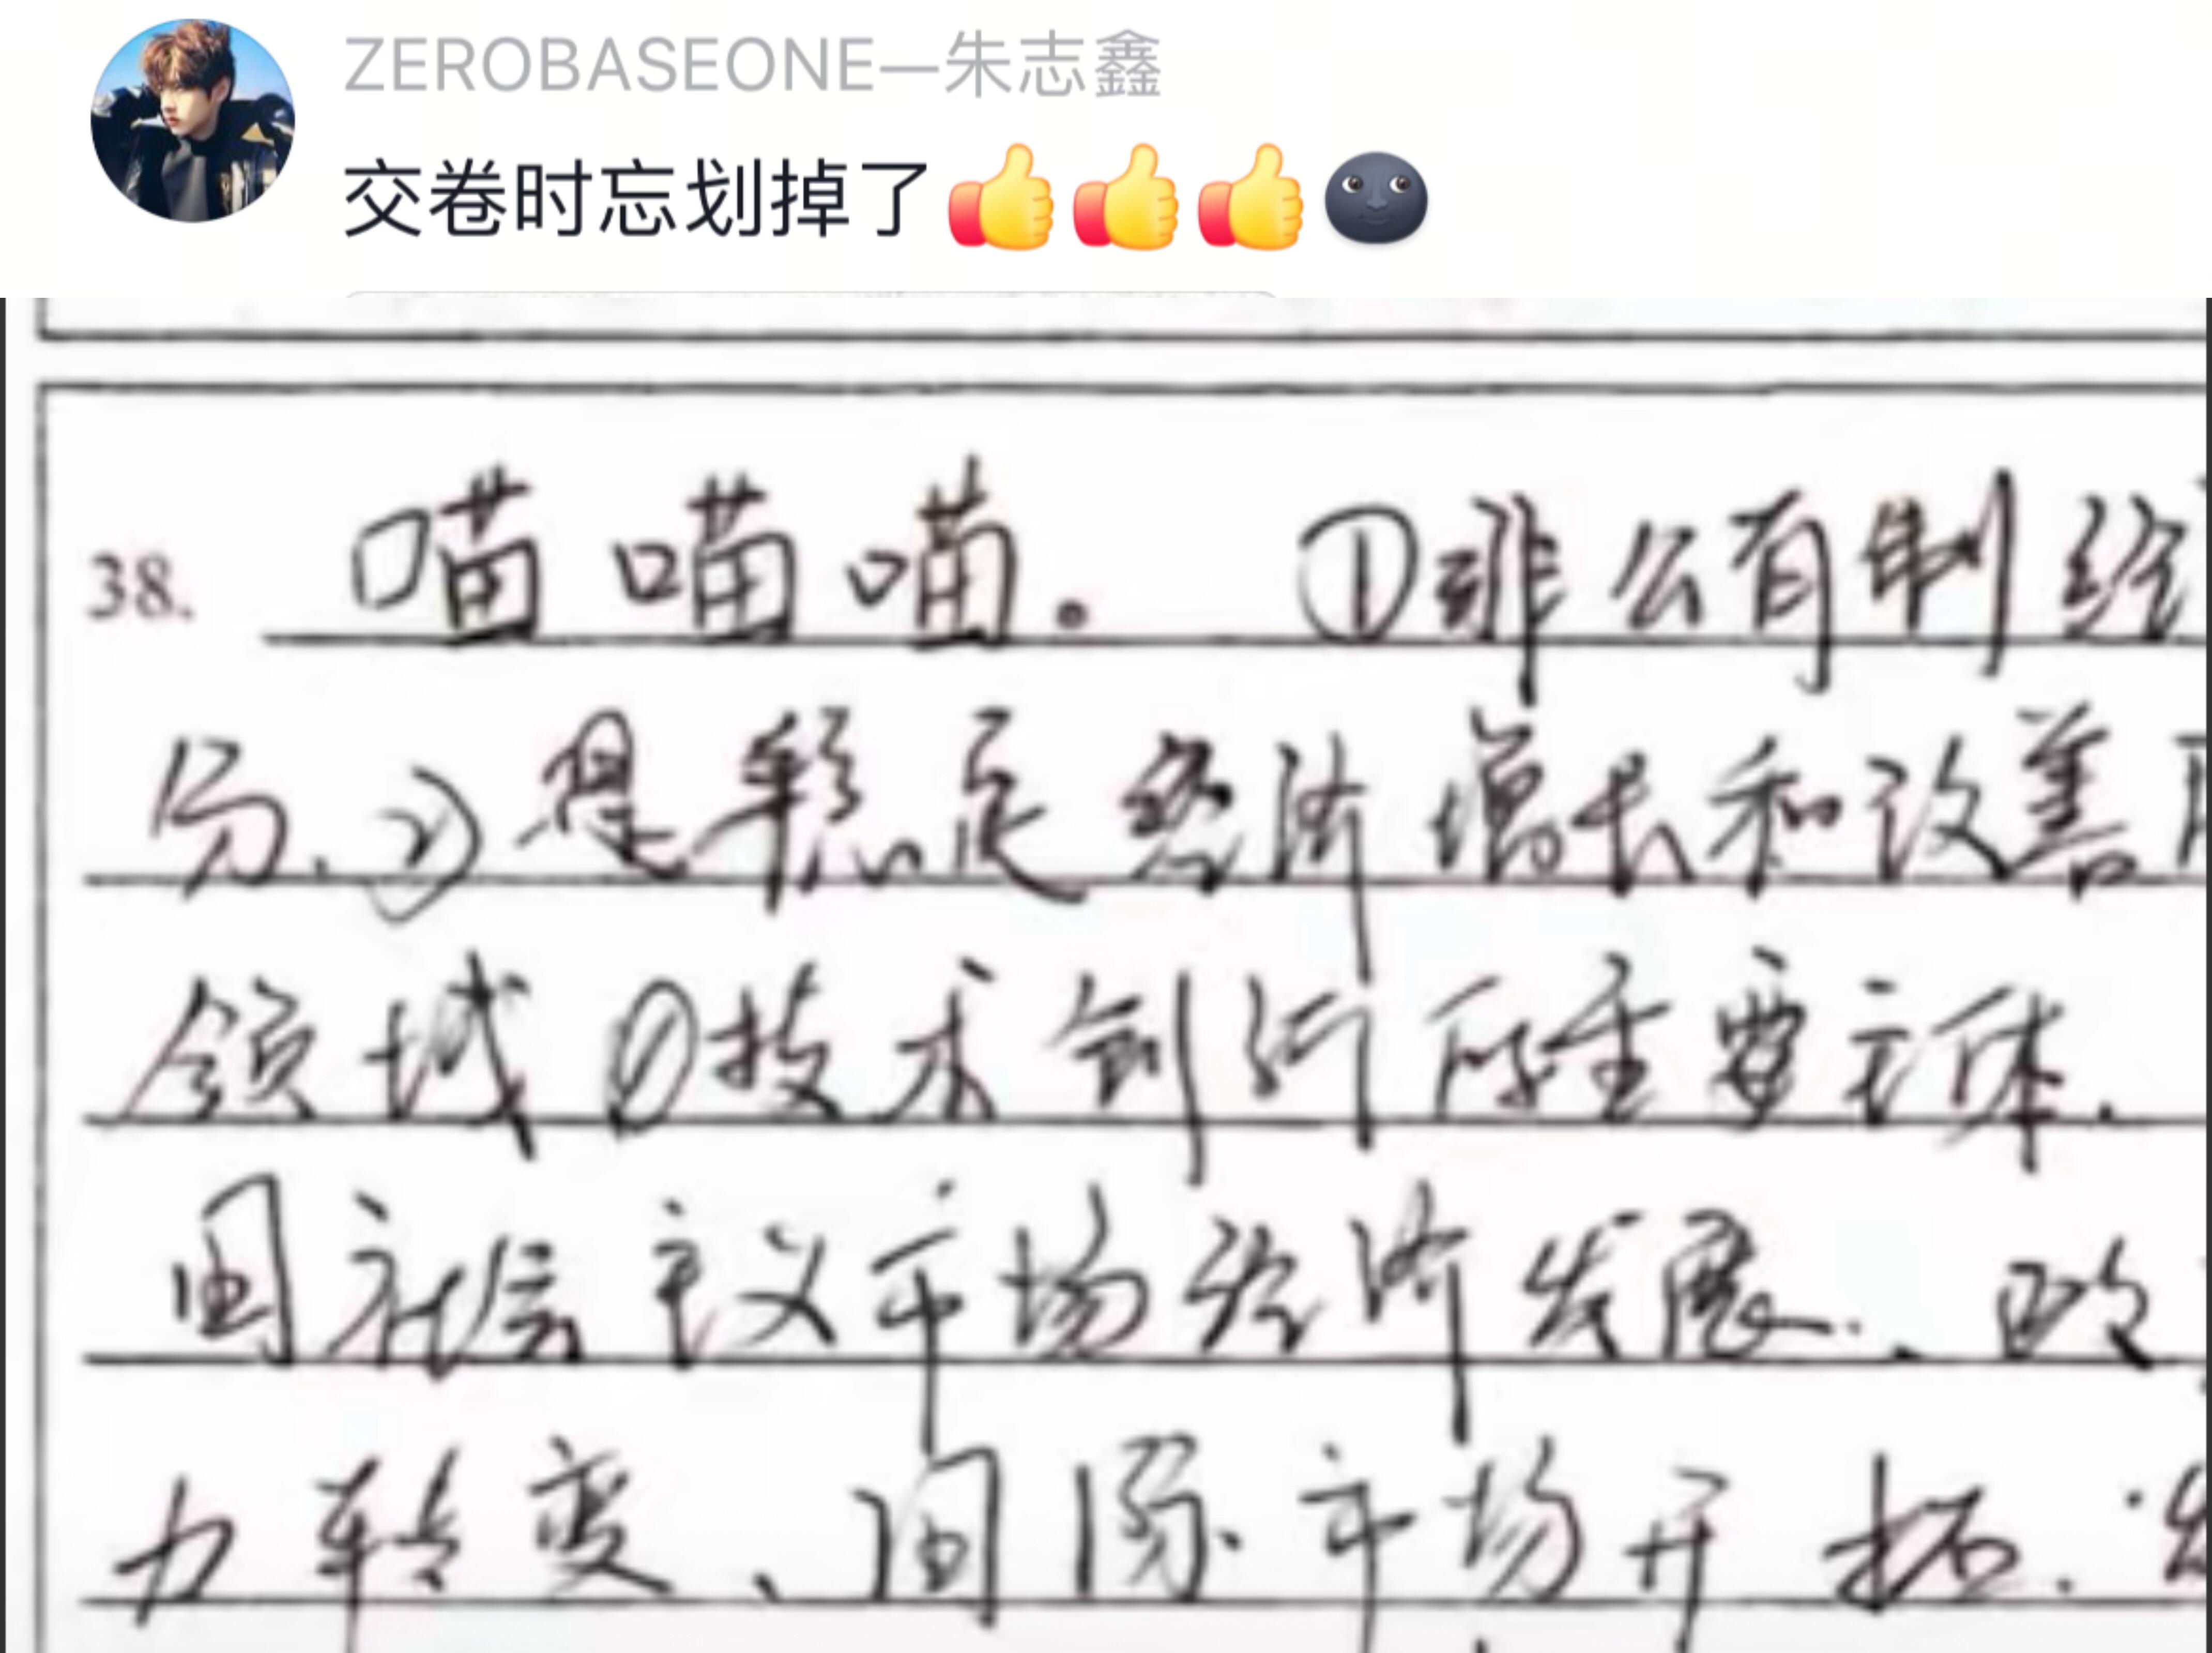 ZEROBASEONE—朱志鑫
交卷时忘划掉了👍👍👍🌚
38. 喵喵喵。 ①非公有制经
分.②是稳定经济增长和改善
领域①技术创新的重要主体.
国社会主义市场经济发展.、政
力转变、国际市场开拓.